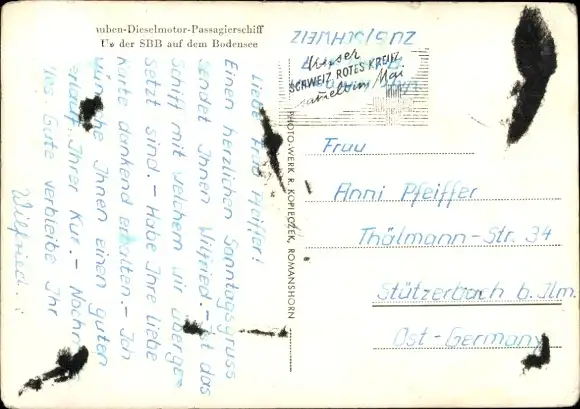 uben-Dieselmotor-Passagierschiff
der SBB auf dem Bodensee
Pfeiffer!
Einen herzlichen Sonntagsgruss
sendet Ihnen Wilfried. – ist das
Schiff mit welchem wir überge-
setzt sind. – Habe Ihre liebe
Karte dankend erhalten. – Ich
wünsche Ihnen einen guten
Verlauf Ihrer Kur. – Nochm
Gute verbleibe Ihr
Wilfried.
PHOTO-WERK R. KOPIECZEK, ROMANSHORN
Unser
SCHWEIZ. ROTES KREUZ
sammelt im Mai
Frau
Anni Pfeiffer
Thälmann-Str. 34
Stützerbach b. Ilm.
Ost-Germany